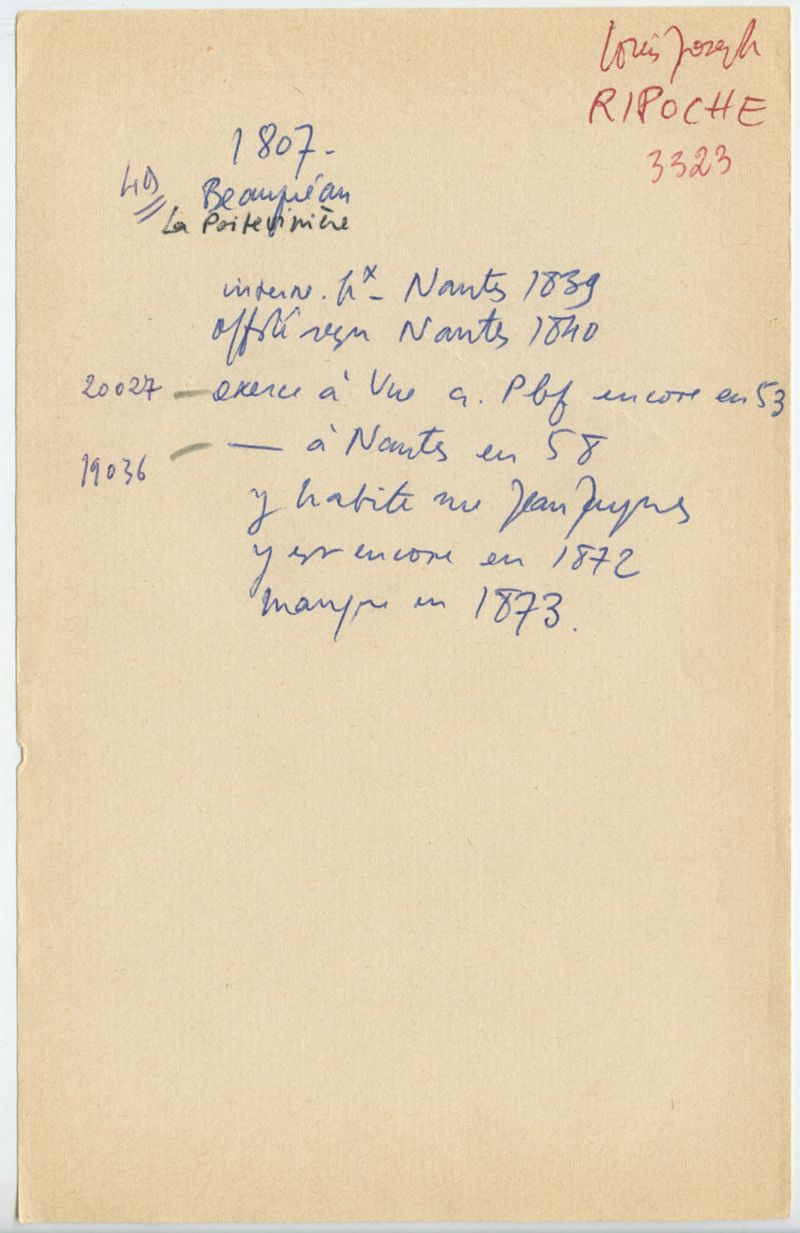 Louis Joseph
RIPOCHE
3323
1807 -
49
Beaupréau
La Poitevinière
interne. hx - Nantes 1839
offité reçu Nantes 1840
20027 — exerce à Vue a. Pbf encore en 53
19036 — — à Nantes en 58
y habite rue Jean Jacques
y est encore en 1872
manque en 1873.